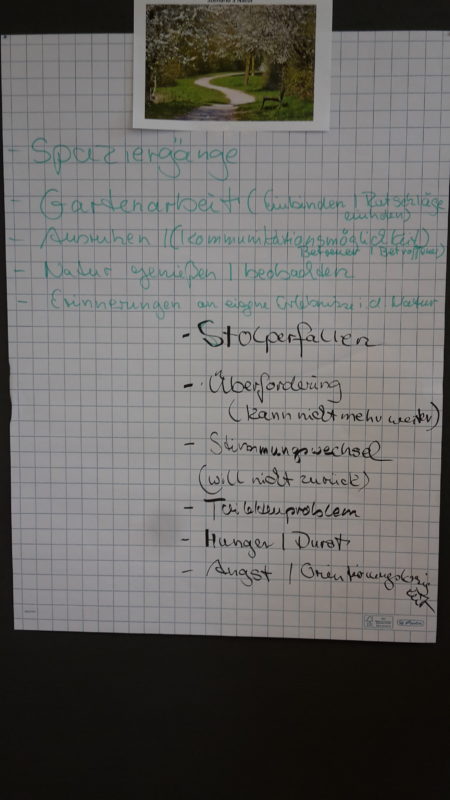 - Spaziergänge
- Gartenarbeit (Einbinden / Ratschläge
einholen)
- Ausruhen / (Kommunikationsmöglichkeit)
Betreuer / Betroffener
- Natur genießen / beobachten
- Erinnerungen an eigene Erlebnisse i. d. Natur
- Stolperfallen
- Überforderung
(kann nicht mehr weiter)
- Stimmungswechsel
(will nicht zurück)
- Toilettenproblem
- Hunger / Durst
- Angst /